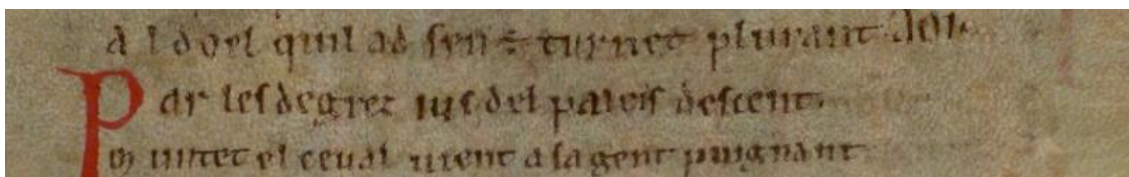 Al doel quil ad sen ÷ turnet plurant aoi
Par les degrez ius del paleis descent.
Muntet el ceual uient a sa gent puignant